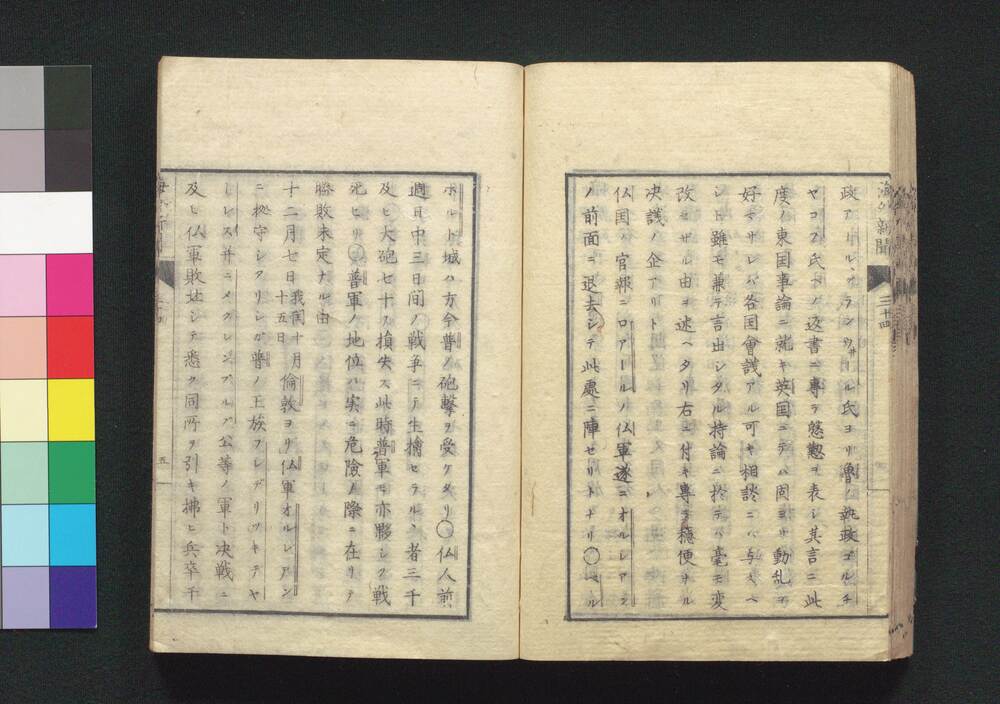 海外新聞
三十四
政アールグランウ井ール氏ヨリ魯ノ執政ゴルチ
ヤコフ氏ヘノ返書ニ專ラ慇懃ヲ表シ其言ニ此
度ノ東国事論ニ就キ英国ニテハ固ヨリ動乱ヲ
好マサレバ各国會議アル可キ相談ニハ与スベ
シト雖モ兼テ言出シタル持論ニ於テハ毫モ変
改セザル由ヲ述ベタリ右ニ付キ專ラ穏便ナル
決議ノ企アリト
仏国ノ官報ニロアールノ仏軍遂ニオルレアン
ノ前面ニ退去シテ此處ニ陣セリトナリ○ベル
ホルト城ハ方今普ノ砲撃ヲ受ケタリ○仏人前
週日中三日間ノ戦争ニテ生擒セラルヽ者三千
及ヒ大砲七十ヲ損失ス此時普軍モ亦夥シク戦
死セリ○普軍ノ地位ハ実ニ危險ノ際ニ在リテ
勝敗未定ナル由
十二月七日我閏十月十五日倫敦ヨリ仏軍オルレアン
ニ拠守シタリシガ普ノ王族フレデリツキチヤ
ーレス并ニメクレンブルグ公等ノ軍ト决戦ニ
及ヒ仏軍敗走シテ悉ク同所ヲ引キ拂ヒ兵卒千
五